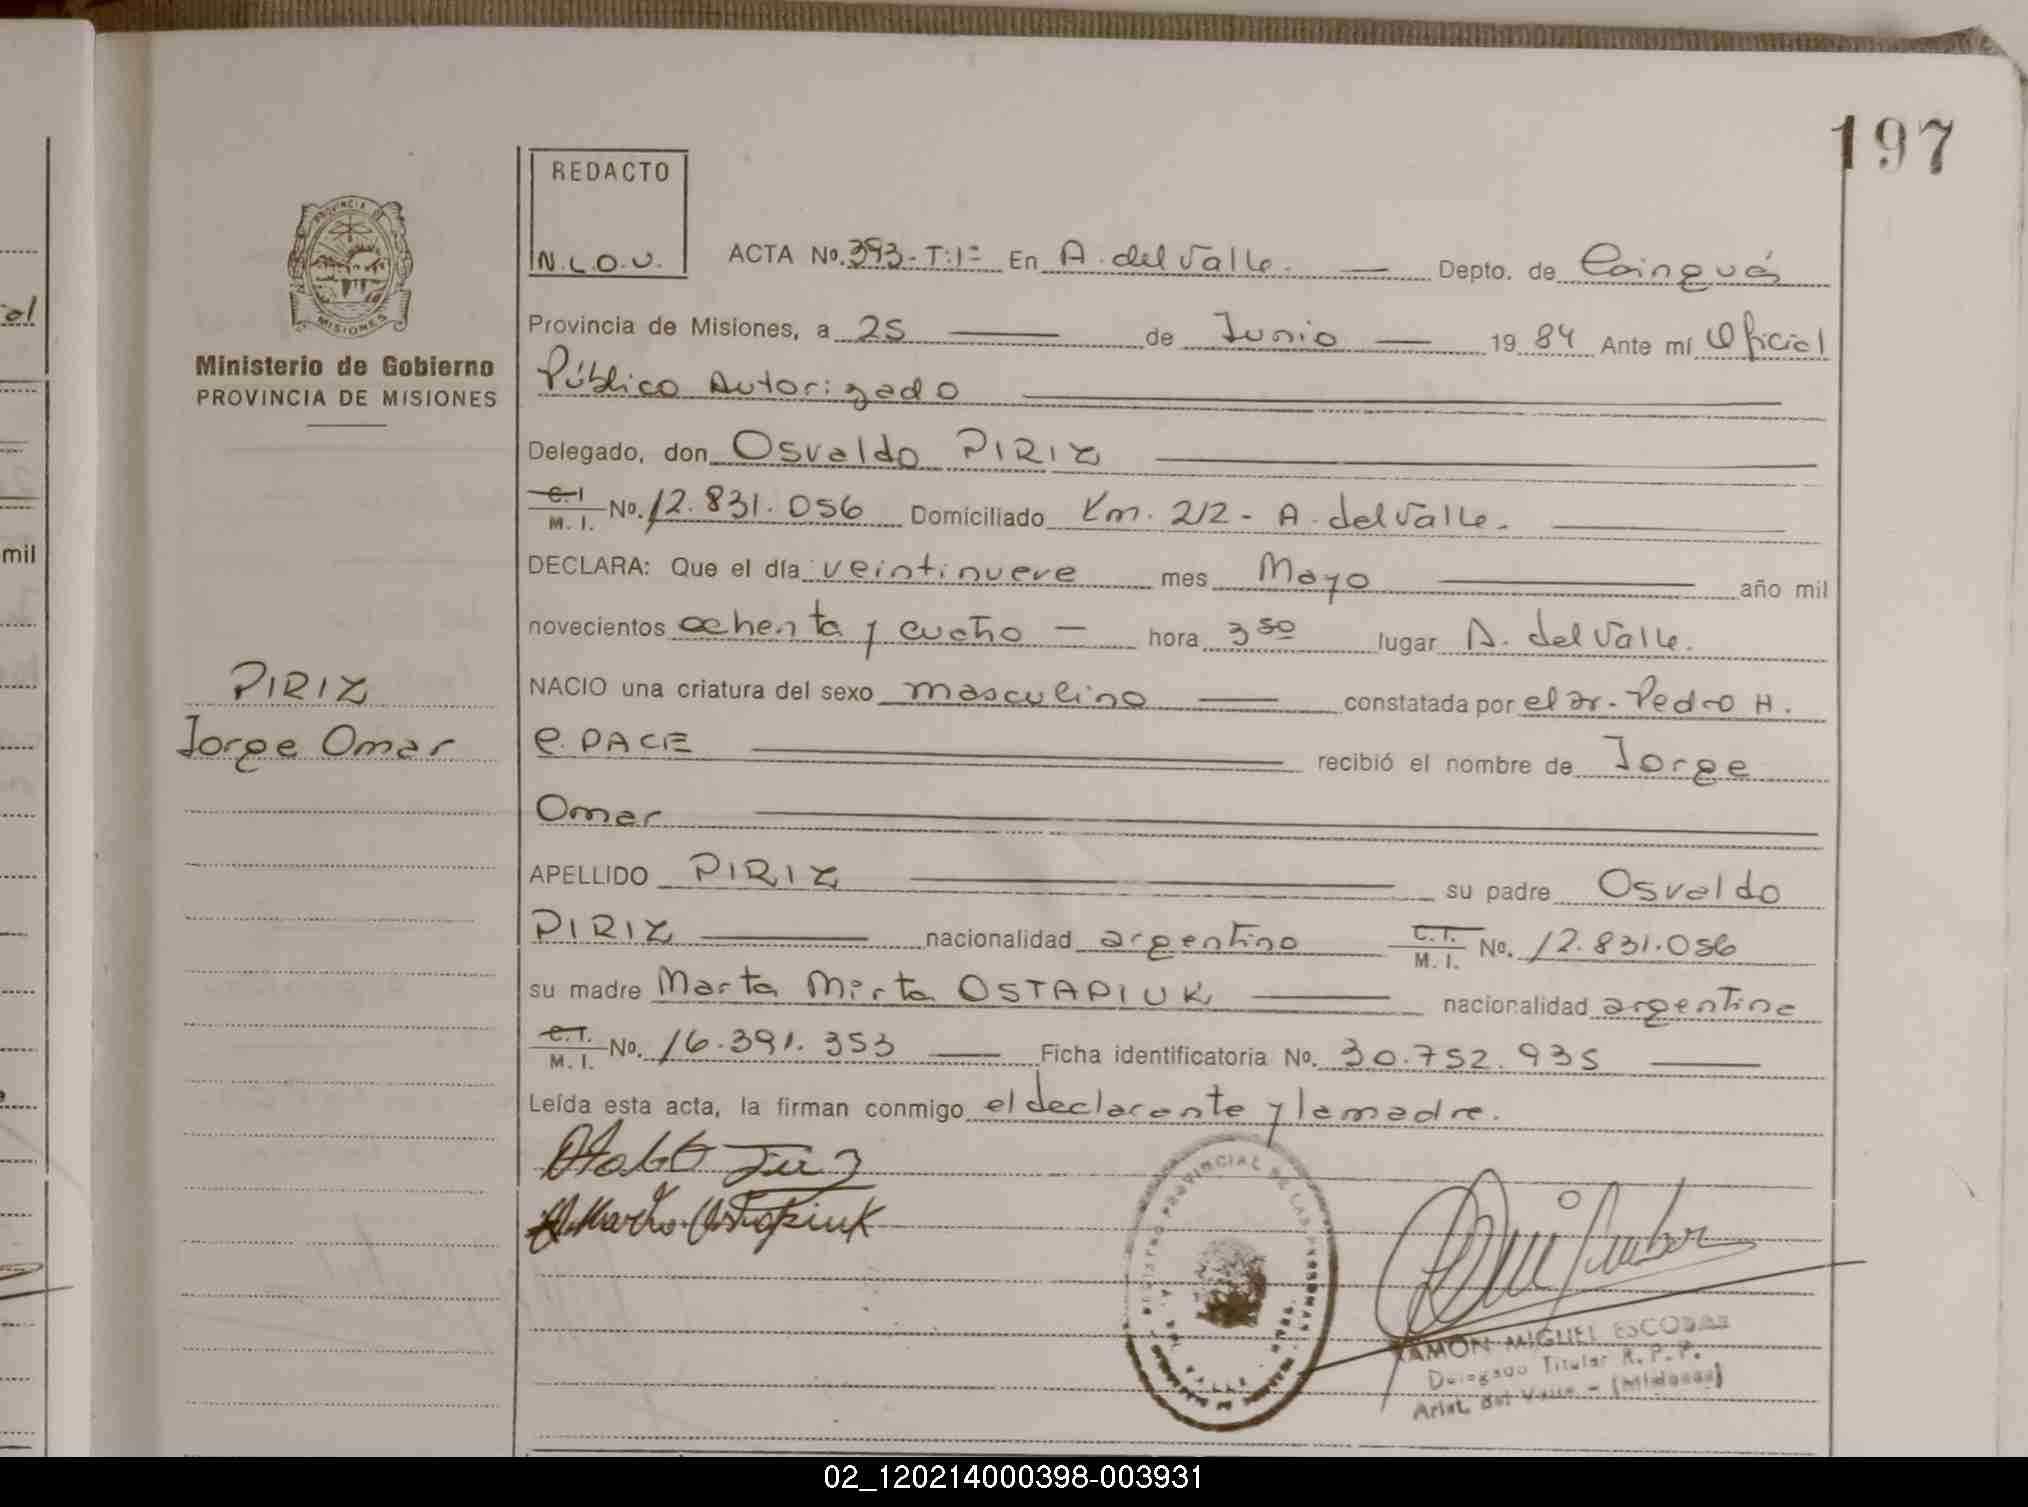 197
REDACTO
N.L.O.V.
ACTA No. 393-T:1= En A. del Valle. Depto. de Cainguás
Provincia de Misiones, a 25 de Junio 1984 Ante mí Oficial
Público Autorizado
Delegado, don Osvaldo PIRIZ
C.I. M.I. No. 12.831.056 Domiciliado Km. 212 - A. del Valle.
DECLARA: Que el día veintinueve mes Mayo año mil
novecientos ochenta y cuatro hora 3 50 lugar A. del Valle.
NACIO una criatura del sexo masculino constatada por el Dr. Pedro H.
e. PACE recibió el nombre de Jorge
Omar
APELLIDO PIRIZ su padre Osvaldo
PIRIZ nacionalidad argentino C.I. M.I. No. 12.831.056
su madre Marta Mirta OSTAPIUK nacionalidad argentina
C.I. M.I. No. 16.391.353 Ficha identificatoria No. 30.752.935
Leída esta acta, la firman conmigo el declarante y la madre.
Ostapiuk
RAMON MIGUEL ESCOBAR
Delegado Titular R.P.P.
Arist. del Valle - (Misiones)
PROVINCIA DE
MISIONES
Ministerio de Gobierno
PROVINCIA DE MISIONES
PIRIZ
Jorge Omar
REGISTRO PROVINCIAL DE LAS PERSONAS
mil
02_120214000398-003931